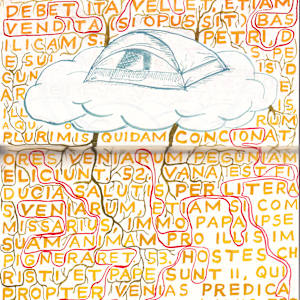 DEBET ITA VELLE, ETIAM
VENDITA SI OPUS SIT, BAS
ILICAM S. PETRI, D
E SU PE
CUN
RUM
PLURIMIS QUIDAM CONCIONAT
ORES VENIARUM PECUNIAM
ELICIUNT. 52. VANA EST FI
DUCIA SALUTIS PER LITERA
S VENIARUM, ETIAMSI COM
MISSARIUS, IMMO PAPA IPSE
SUAM ANIMAM PRO ILLIS IM
PIGNERARET. 53. HOSTES CH
RISTI ET PAPE SUNT II, QUI
PROPTER VENIAS PREDICA